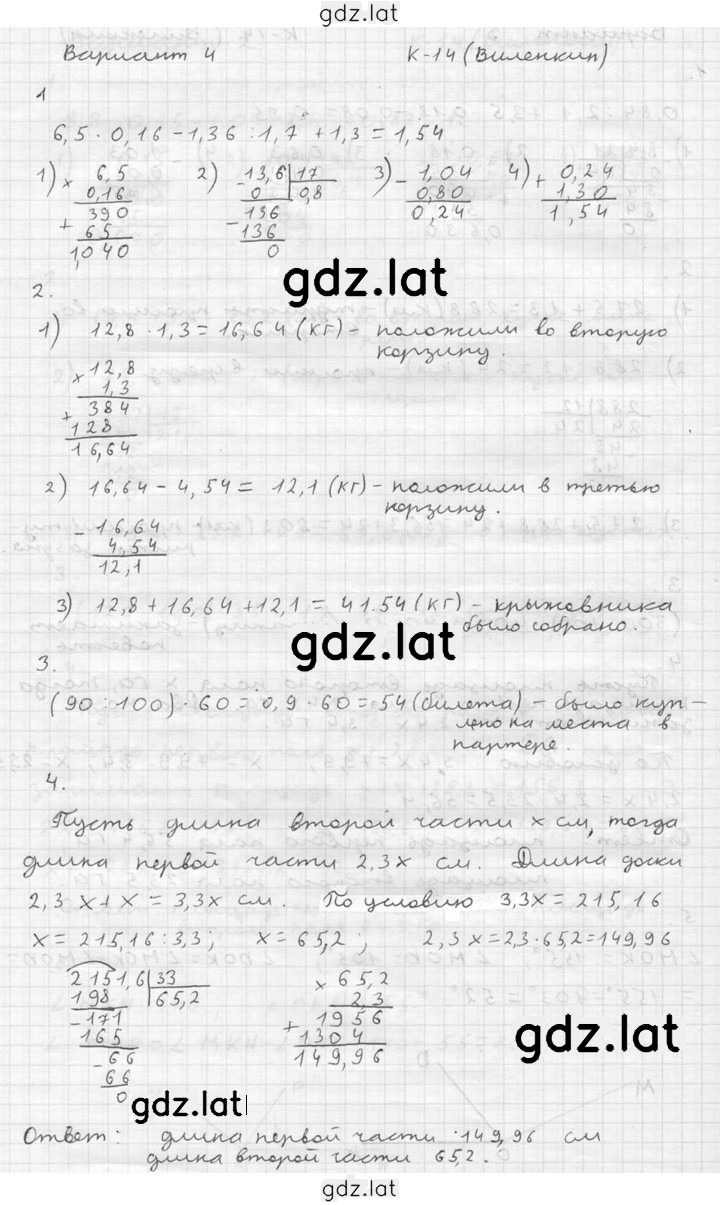 gdz.lat
Вариант 4 К-14 (Виленкин)
1
6,5 · 0,16 - 1,36 : 1,7 + 1,3 = 1,54
1) × 6,5 2) - 13,6 | 17 3) - 1,04 4) + 0,24
0,16 0 | 0,8 0,80 1,30
390 136 0,24 1,54
+ 65 - 136
1,040 0
gdz.lat
2.
1) 12,8 · 1,3 = 16,64 (кг) - положили во вторую
корзину.
× 12,8
1,3
+ 384
128
16,64
2) 16,64 - 4,54 = 12,1 (кг) - положили в третью
корзину.
- 16,64
4,54
12,1
3) 12,8 + 16,64 + 12,1 = 41.54 (кг) - крыжовника
было собрано.
gdz.lat
3.
(90 : 100) · 60 = 0,9 · 60 = 54 (билета) - было куп-
лено на места в
партере.
4.
Пусть длина второй части x см, тогда
длина первой части 2,3x см. Длина доски
2,3x + x = 3,3x см. По условию 3,3x = 215,16
x = 215,16 : 3,3; x = 65,2; 2,3x = 2,3 · 65,2 = 149,96
2151,6 | 33 × 65,2
198 | 65,2 2,3
- 171 1956
165 + 1304
- 66 149,96
66
0
gdz.lat
gdz.lat
Ответ: длина первой части 149,96 см
длина второй части 65,2.
gdz.lat